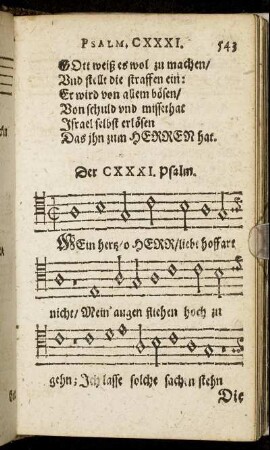 PSALM. CXXXI. 543
GOtt weiß es wol zu machen/
Vnd stellt die straffen ein:
Er wird von allem bösen/
Von schuld vnd missethat
Israel selbst erlösen
Das jhn zum HERREN hat.
Der CXXXI. Psalm.
MEin hertz/o HERR/liebt hoffart
nicht/Mein augen fliehen hoch zu
gehn; Ich lasse solche sachen stehn
Die